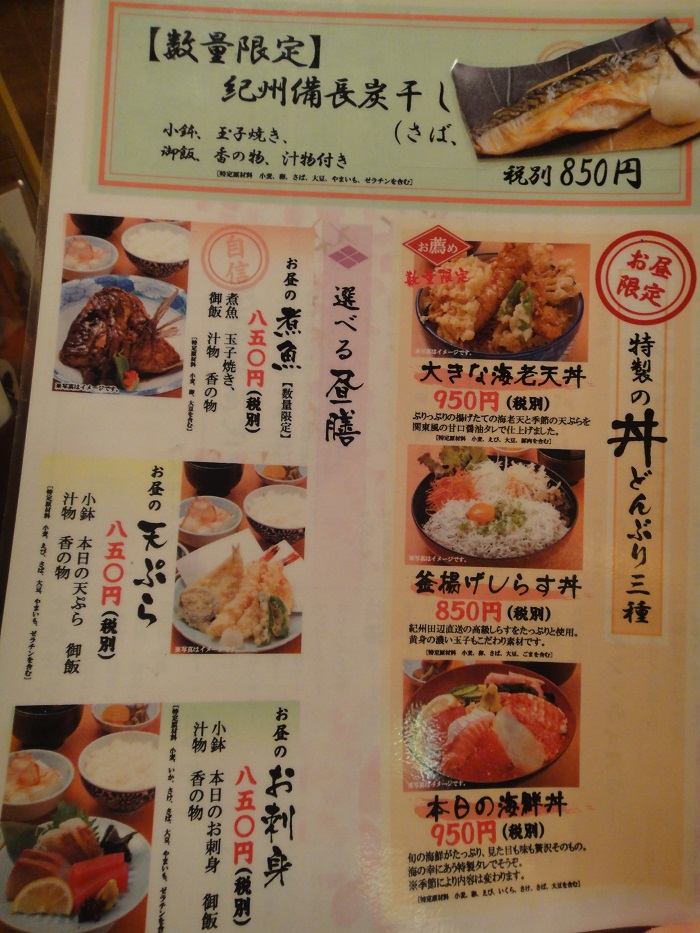 【数量限定】
紀州備長炭干し
(さば、
小鉢、玉子焼き、
御飯、香の物、汁物付き
[特定原材料 小麦、卵、さば、大豆、やまいも、ゼラチンを含む]
税別850円
お昼限定
特製の丼どんぶり三種
お薦め
数量限定
※写真はイメージです。
大きな海老天丼
950円(税別)
ぷりっぷりの揚げたての海老天と季節の天ぷらを
関東風の甘口醤油タレで仕上げました。
[特定原材料 小麦、えび、大豆、豚肉を含む]
※写真はイメージです。
釜揚げしらす丼
850円(税別)
紀州田辺直送の高級しらすをたっぷりと使用。
黄身の濃い玉子もこだわり素材です。
[特定原材料 小麦、卵、さば、大豆、ごまを含む]
本日の海鮮丼
950円(税別)
旬の海鮮がたっぷり、見た目も味も贅沢そのもの。
海の幸にあう特製タレでどうぞ。
※季節により内容は変わります。
[特定原材料 小麦、卵、えび、いくら、さけ、さば、大豆を含む]
選べる昼膳
自信
お昼の煮魚【数量限定】
八五〇円(税別)
煮魚 玉子焼き、
御飯 汁物 香の物
[特定原材料 小麦、卵、さば、大豆を含む]
※写真はイメージです。
お昼の天ぷら
八五〇円(税別)
小鉢 本日の天ぷら 御飯
汁物 香の物
[特定原材料 小麦、えび、さば、大豆、やまいも、ゼラチンを含む]
※写真はイメージです。
お昼のお刺身
八五〇円(税別)
小鉢 本日のお刺身 御飯
汁物 香の物
[特定原材料 小麦、いか、さけ、さば、大豆、やまいも、ゼラチンを含む]